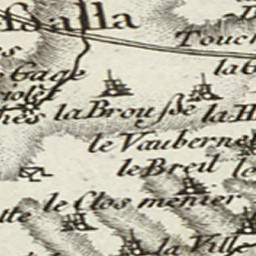 Balla
Touch
la G
Gage
la Brousse
la H
le Vauberne
le Breil
le
le Clos menier
la Ville